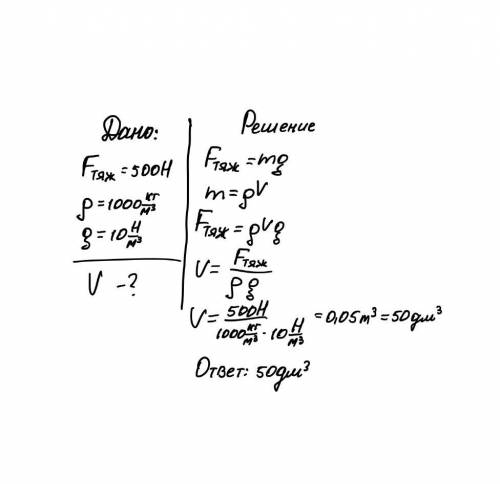 Дано:
Fтяж = 500Н
ρ = 1000 кг/м³
g = 10 Н/м³
V - ?
Решение
Fтяж = mg
m = ρV
Fтяж = ρVg
V = Fтяж / ρ g
V = 500Н / 1000 кг/м³ · 10 Н/м³ = 0,05 м³ = 50 дм³
Ответ: 50 дм³